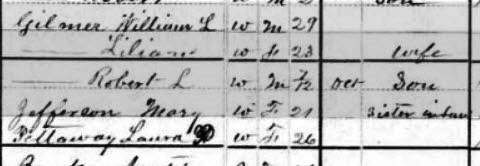 Gilmer William L W M 29
—— Lilian W F 23 wife
—— Robert L W M /12 Oct Son
Jefferson Mary W F 21 Sister in law
Pettaway Laura W F 26